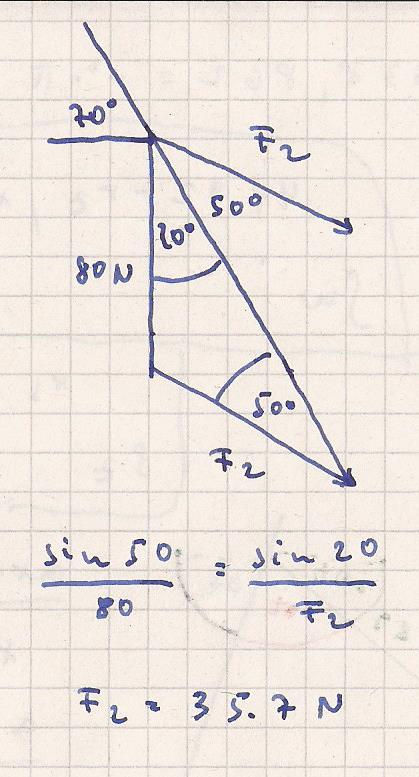 70°
F2
50°
20°
80N
50°
F2
sin 50 / 80 = sin 20 / F2
F2 = 35.7 N